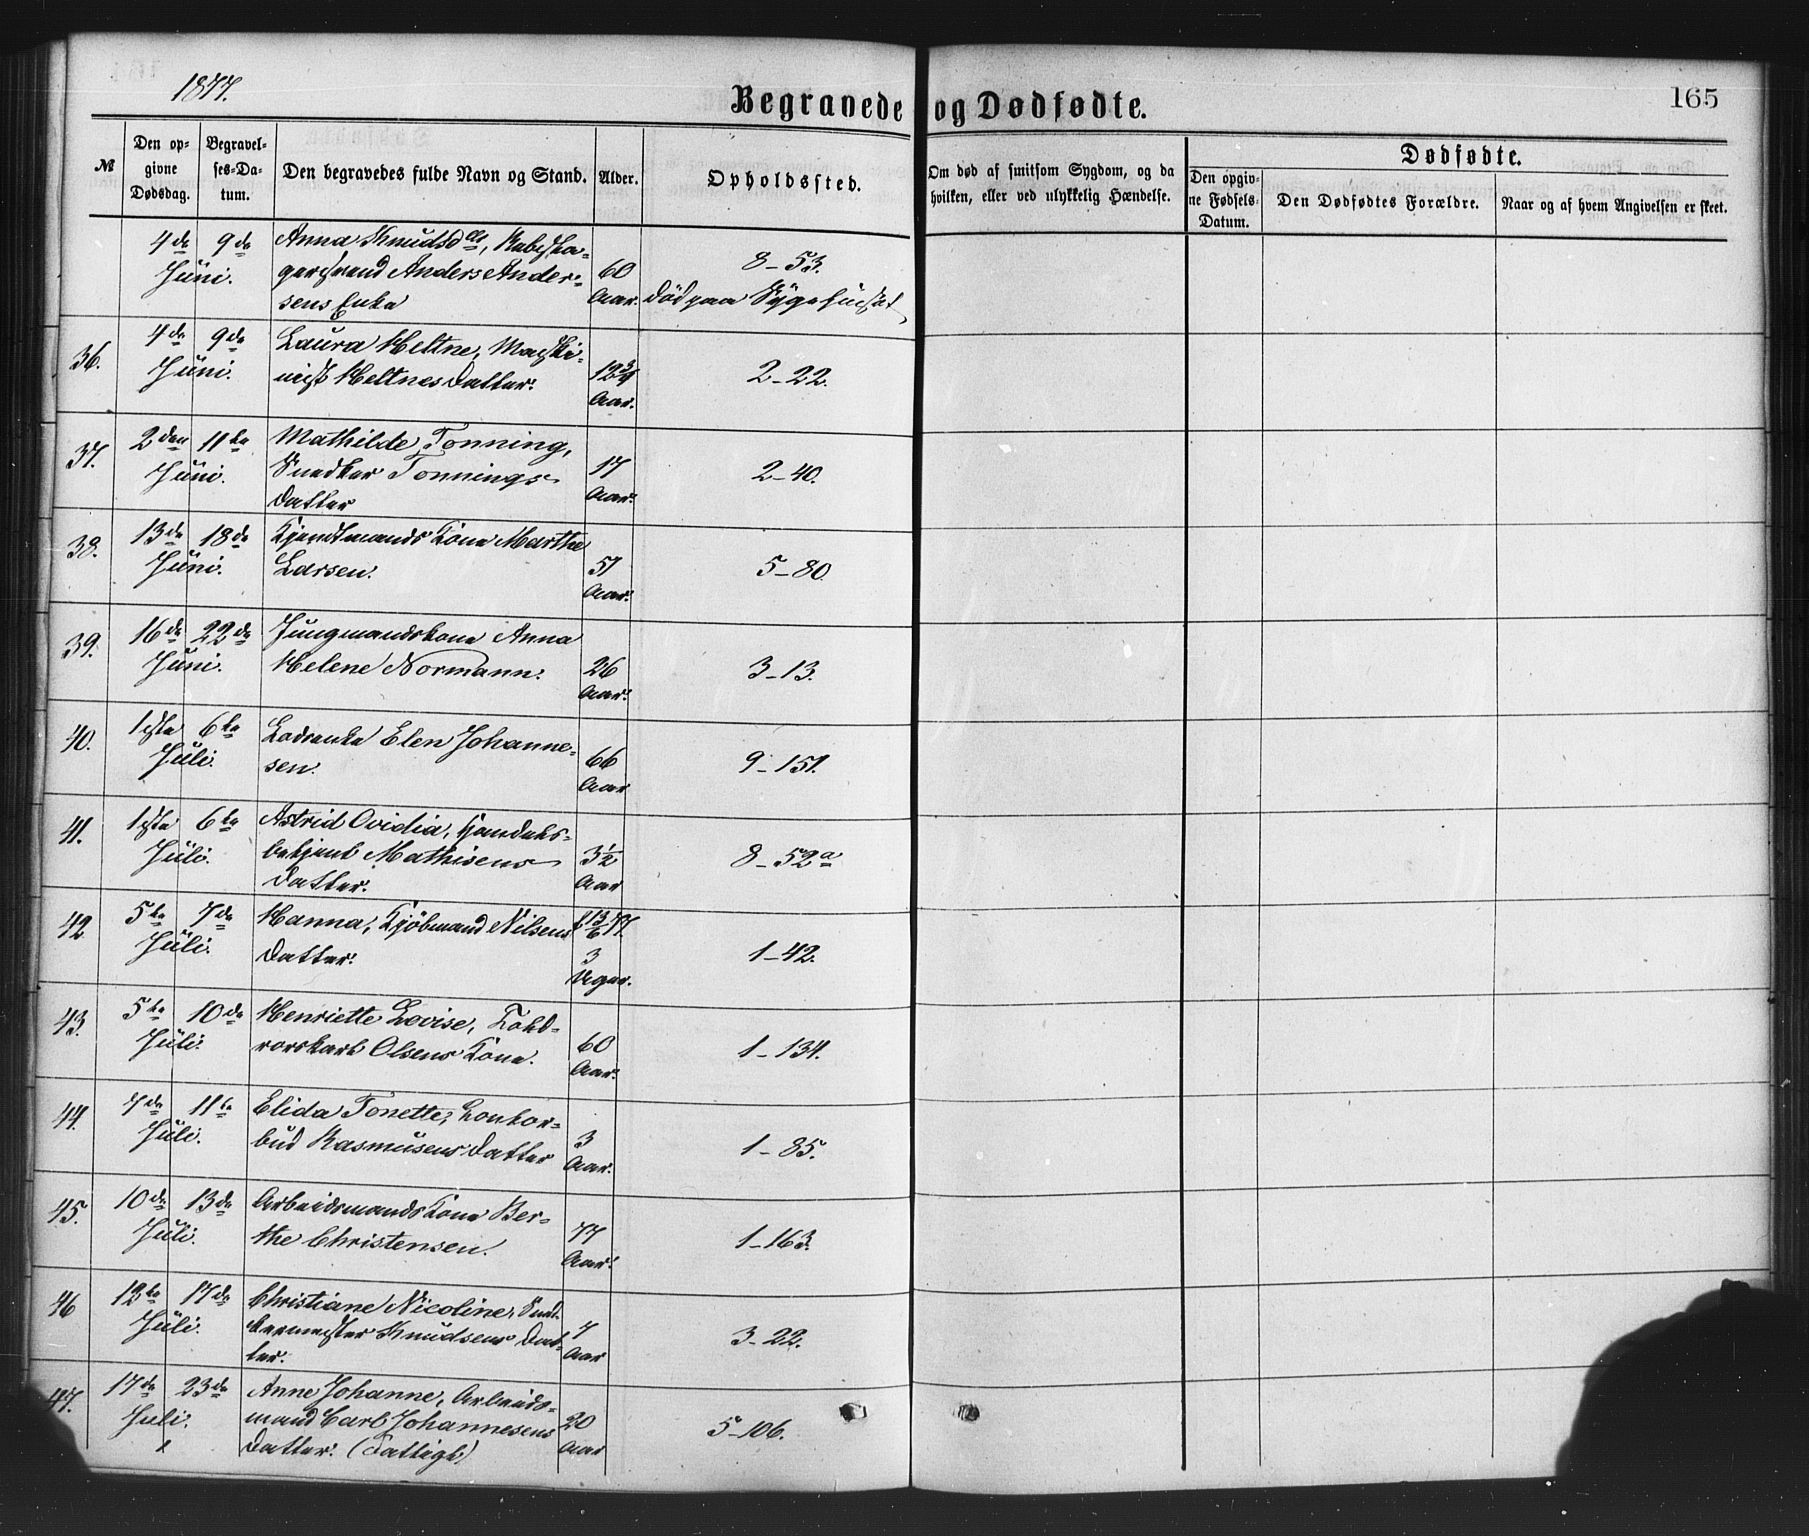 1877.
Begravede og Dødfødte.
165
№
Den opgivne Dødsdag.
Begravelses-Datum.
Den begravedes fulde Navn og Stand.
Alder.
Opholdssted.
Om død af smitsom Sygdom, og da hvilken, eller ved ulykkelig Hændelse.
Dødfødte.
Den opgivne Fødsels-Datum.
Den Dødfødtes Forældre.
Naar og af hvem Angivelsen er skeet.
4de 9de Anna Knudsd
Juni. Anders Ander- 60 8-53.
sens Enke Aar. død paa Sygehuset
36. 4de 9de Laura Heltne, Maski-
Juni. nist Heltnes Datter. 12 3/4 Aar. 2-22.
37. 2den 11te Mathilde Tonning,
Juni. Snedker Tonnings 17 2-40.
Datter Aar.
38. 13de 18de Kjendtmands Kone Marthe
Juni. Larsen. 57 Aar. 5-80.
39. 16de 22de Jungmandskone Anna
Juni. Helene Normann. 26 Aar. 3-13.
40. 1ste 6te Elen Johanne-
Juli. sen. 66 Aar 9-151.
41. 1ste 6te Astrid Ovidia, Handels-
Juli. betjent Mathisens 3½ 8-52a
Datter. Aar
42. 5te 7de Hanna, Kjøbmand Nilsens f 13/6 77.
Juli. Datter. 3 Uger. 1-42.
43. 5te 10de Henriette Lovise, Told-
Juli. rorskarl Olsens Kone. 60 Aar. 1-134.
44. 7de 11te Elida Tonette, Kontor-
Juli. bud Rasmusens Datter 3 Aar. 1-85.
45. 10de 13de Arbeidsmands Kone Ber-
Juli. the Christensen. 77 Aar. 1-163.
46 12te 17de Christiane Nicoline, Sned-
Juli. kermester Knudsens Dat- 7 3-22.
ter. Aar
47. 17de 23de Anne Johanne, Arbeids-
Juli. mand Carl Johannesens 20 5-106.
Datter. (Fattigl.) Aar